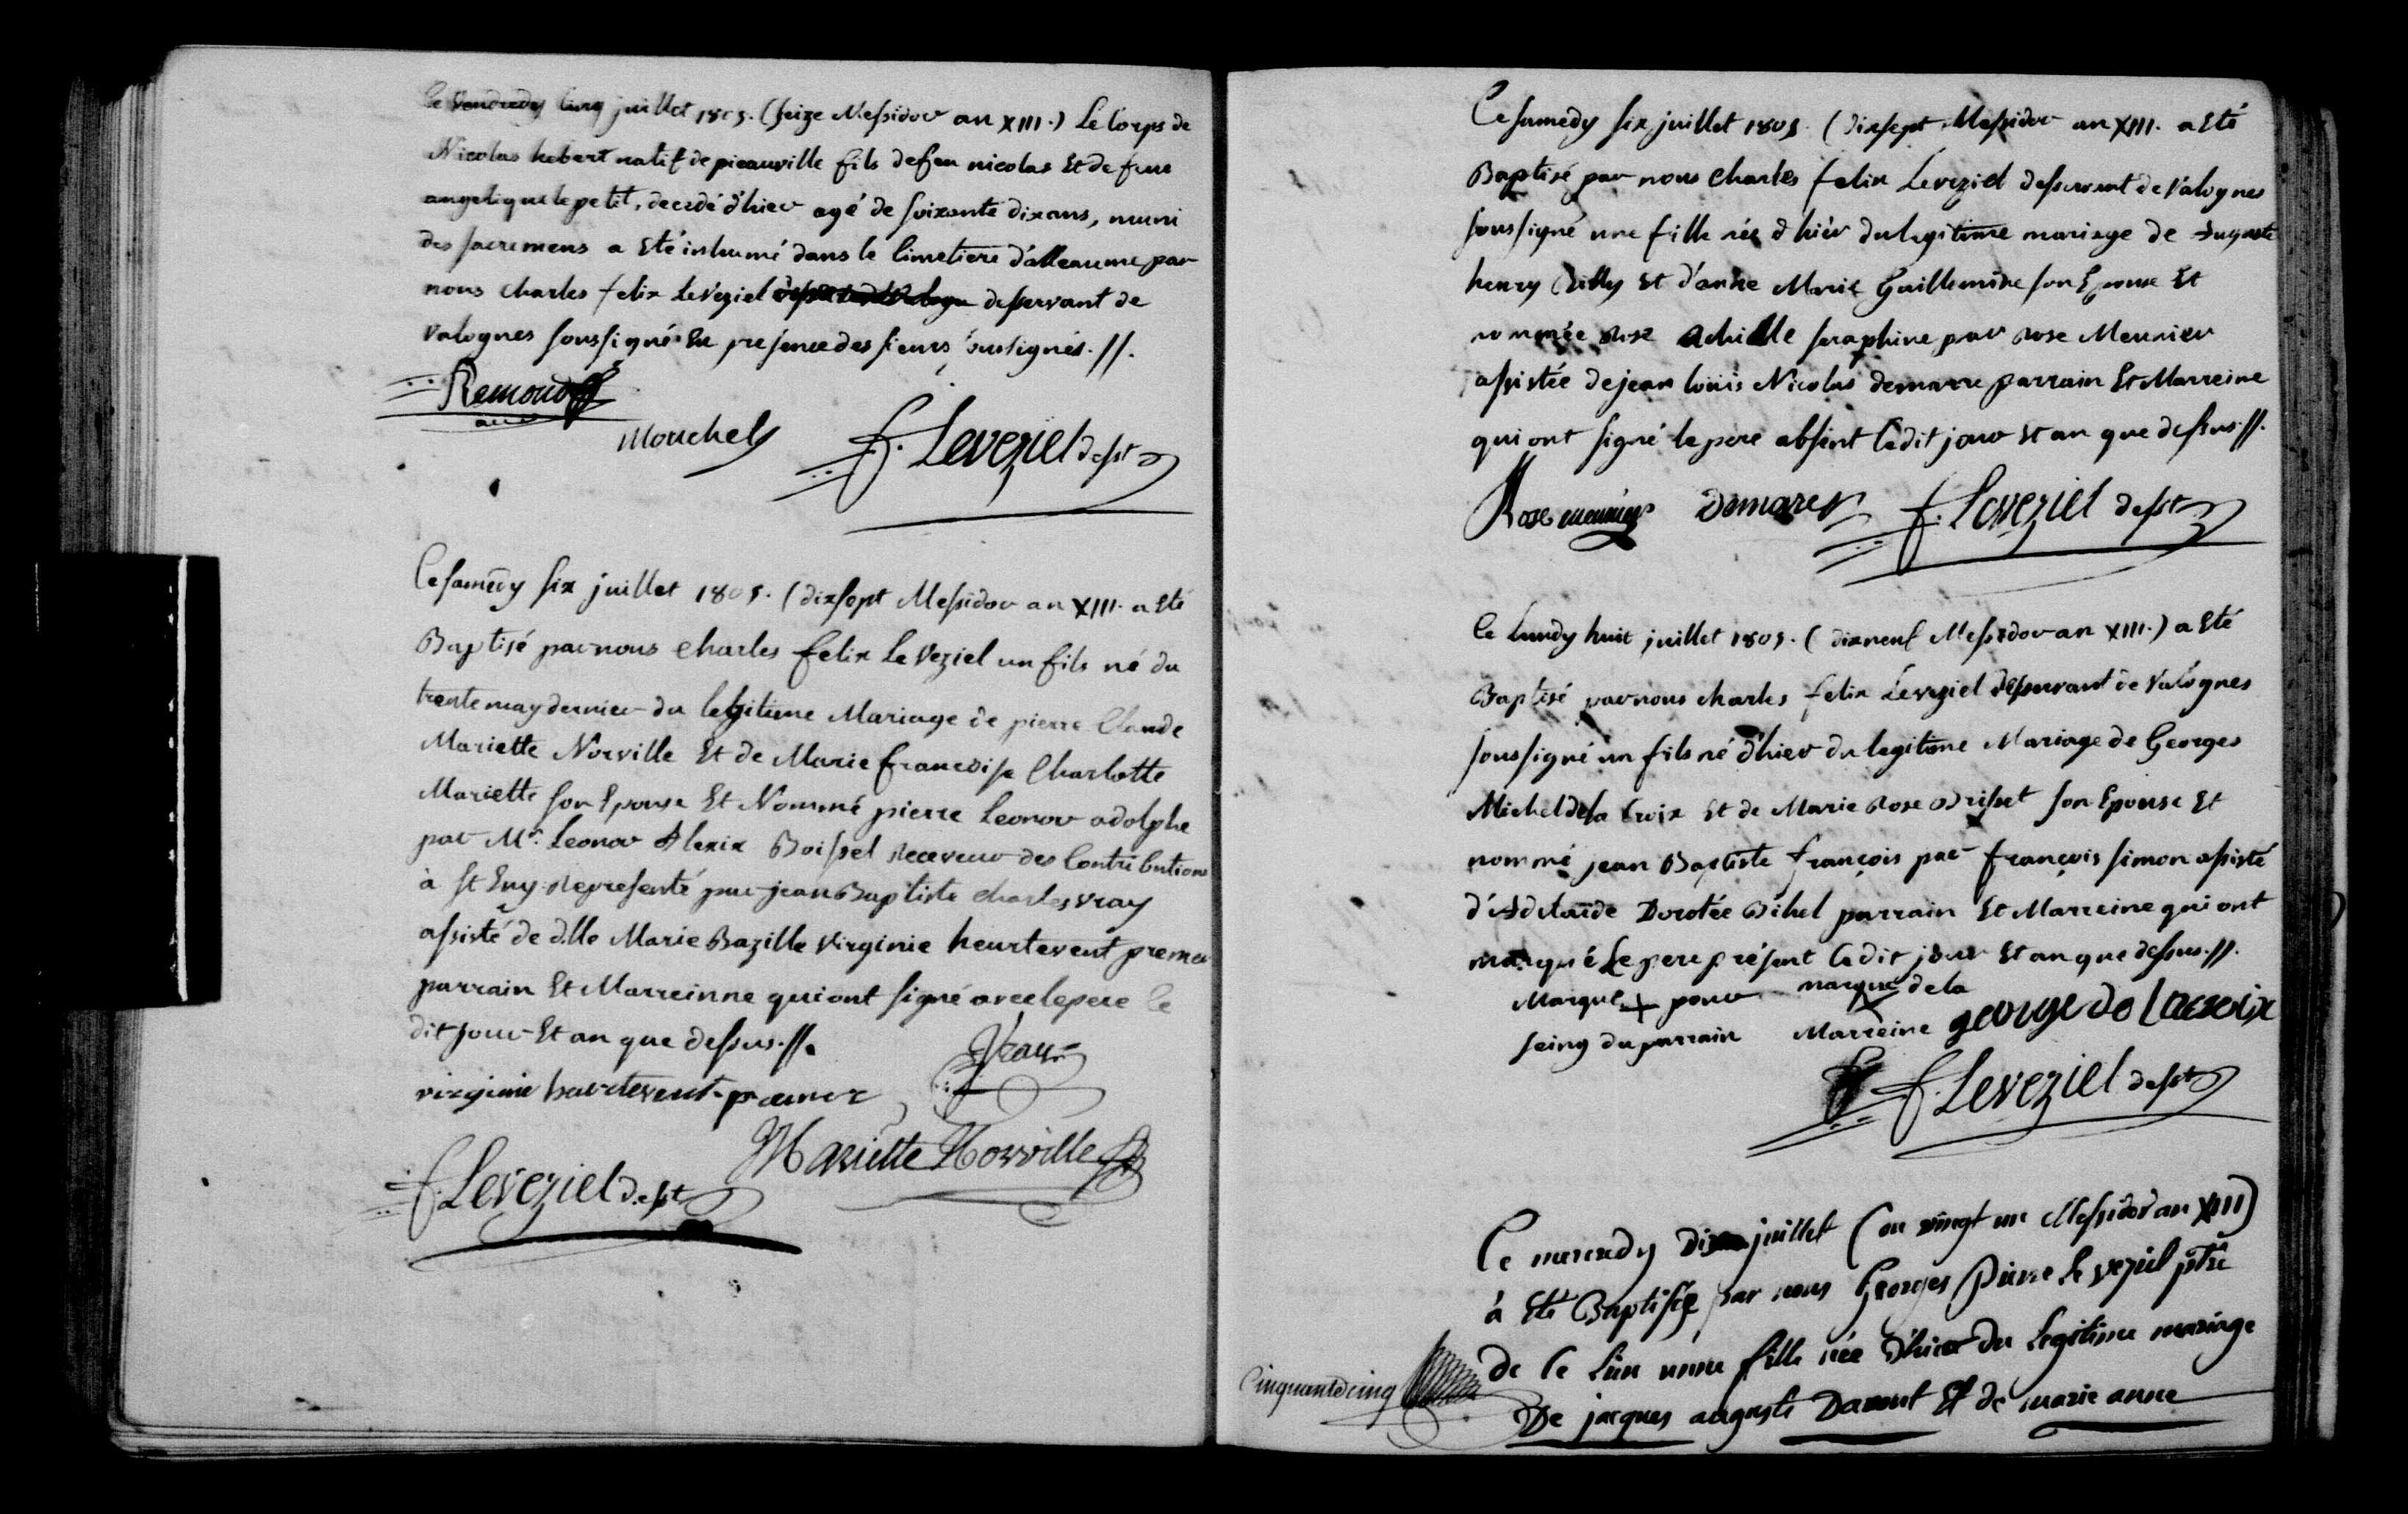 Ce Vendredy Cinq juillet 1805. (Seize Messidor an XIII.) Le Corps de
Nicolas hebert natif de picauville fils de feu nicolas Et de feue
angelique le petit, decedé d'hier agé de soixante dix ans, muni
des sacremens a Eté inhumé dans le Cimetiere d'alleaume par
nous Charles felix LeVeziel desservant de
Valognes soussigné En presence des sieurs soussignés.//.
Remond
Mouchel
f. LeVeziel desst
Ce samedy six juillet 1805. (dix sept Messidor an XIII. a Eté
Baptisé par nous Charles felix Le Veziel un fils né du
trente may dernier du legitime Mariage de pierre Claude
Mariette Norville Et de Marie francoise Charlotte
Mariette son Epouse Et Nommé pierre Leonor adolphe
par Mr. Leonor Alexix Boissel Receveur des Contributions
à St Eny Representé par jean Baptiste Charles Vray
assisté de dlle Marie Bazille Virginie heurtevent premer
parrain Et Marreinne qui ont signé avec le pere le
dit jour Et an que dessus.//.
Vray
virginie heurtevent-premer
Mariette Norville
f. LeVeziel desst
Ce samedy six juillet 1805. (dix sept Messidor an XIII. a Eté
Baptisé par nous Charles felix Leveziel desservant de Valognes
soussigné une fille née d'hier du legitime mariage de Auguste
henry Et d'anne Marie Guillemine son Epouse Et
nommée Rose Achille seraphine par Rose Meunier
assistée de jean louis Nicolas demarre parrain Et Marreine
qui ont signé le pere absent Ledit jour Et an que dessus.//.
Rose meunier
Demare
f. LeVeziel desst
Ce Lundy huit juillet 1805. (dix neuf Messidor an XIII.) a Eté
Baptisé par nous Charles felix Leveziel desservant de Valognes
soussigné un fils né d'hier du legitime Mariage de Georges
Michel de la Croix Et de Marie Rose Brisset son Epouse Et
nommé jean Baptiste françois par françois simon assisté
d'Adelaïde Dorotée Bihel parrain Et Marreine qui ont
marqué Le pere présent Ledit jour Et an que dessus.//.
Marque + pour
seing du parrain
marque de la
Marreine
george de Lacroix
f. LeVeziel desst
Ce mercredy Dix juillet (ou vingt un Messidor an XIII)
à Eté Baptisée par nous Georges Pierre Le Veziel ptre
de ce lieu unne fille née d'hier du Legitime mariage
Cinquante cinq
De jacques auguste Et de marie anne